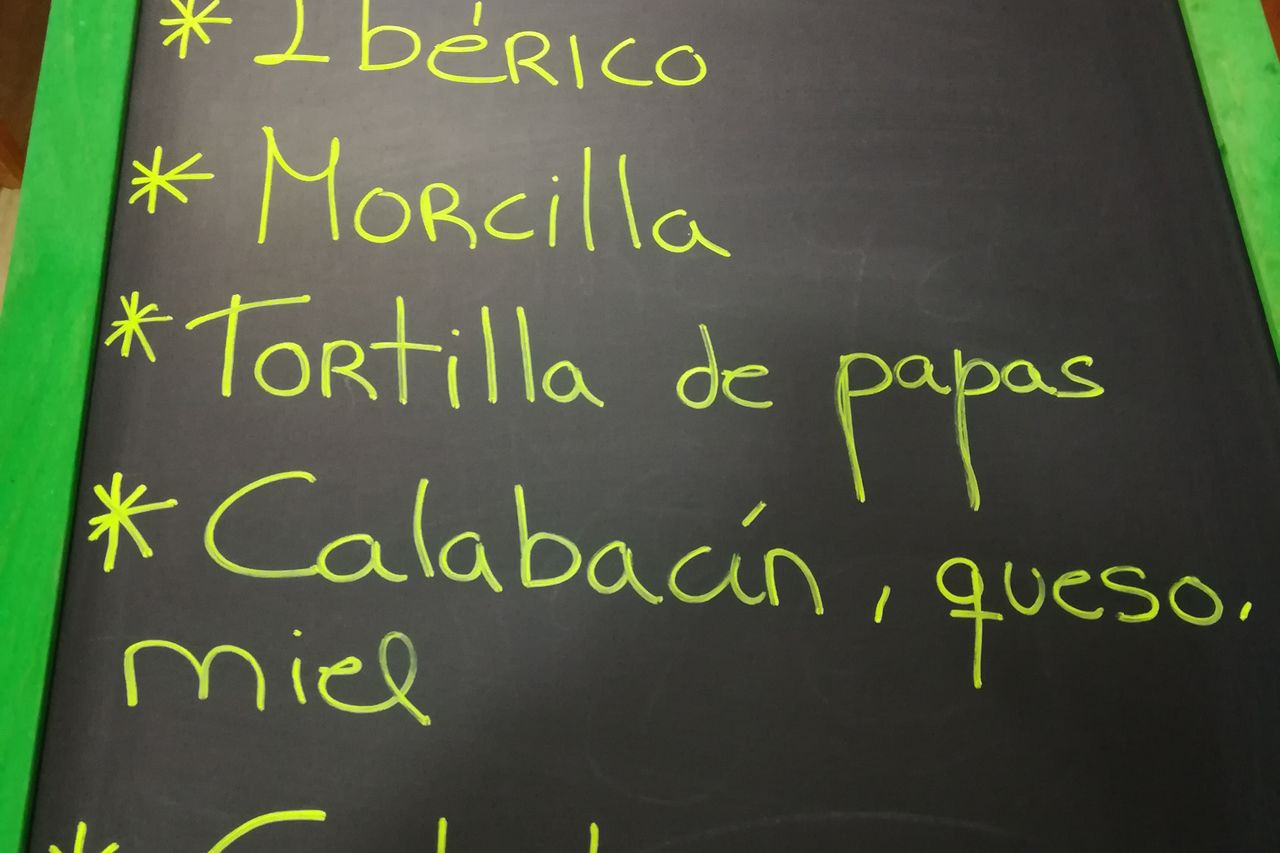 * Ibérico
* Morcilla
* Tortilla de papas
* Calabacín, queso,
miel
*